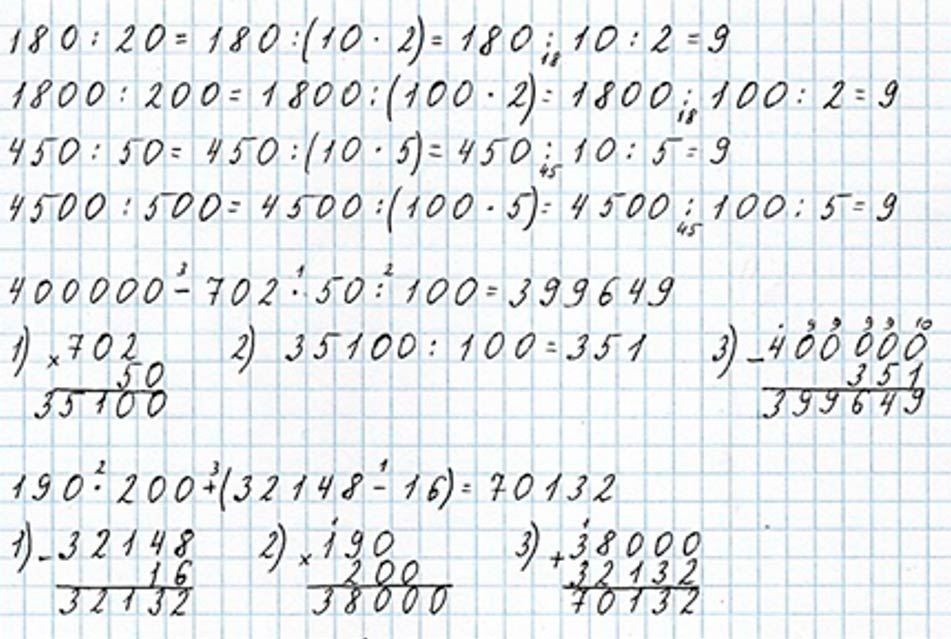 180 : 20 = 180 : (10 · 2) = 180 : 10 : 2 = 9
18
1800 : 200 = 1800 : (100 · 2) = 1800 : 100 : 2 = 9
18
450 : 50 = 450 : (10 · 5) = 450 : 10 : 5 = 9
45
4500 : 500 = 4500 : (100 · 5) = 4500 : 100 : 5 = 9
45
3 1 2
400000 - 702 · 50 : 100 = 399649
9 9 9 9 10
1) × 702 2) 35100 : 100 = 351 3) - 400000
50 351
35100 399649
2 3 1
190 · 200 + (32148 - 16) = 70132
1 1
1) - 32148 2) × 190 3) + 38000
16 200 32132
32132 38000 70132